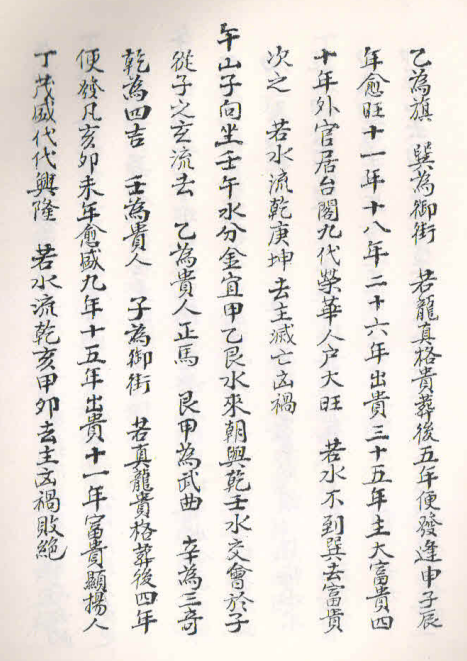 乙為旗　巽為御街　若龍真格貴葬後五年便發逢申子辰
年愈旺十一年十八年二十六年出貴三十五年主大富貴四
十年外官居台閣九代榮華人户大旺　若水不到巽去富貴
次之　若水流乾庚坤去主滅亡凶禍
午山子向坐壬午水分金宜甲乙艮水來朝與乾壬水交會於子
從子之亥流去　乙為貴人正馬　艮甲為武曲　辛為三奇
乾為四吉　壬為貴人　子為御街　若真龍貴格葬後四年
便發凡亥卯未年愈盛九年十五年出貴十一年富貴顯揚人
丁茂盛代代興隆　若水流乾亥甲卯去主凶禍敗絕